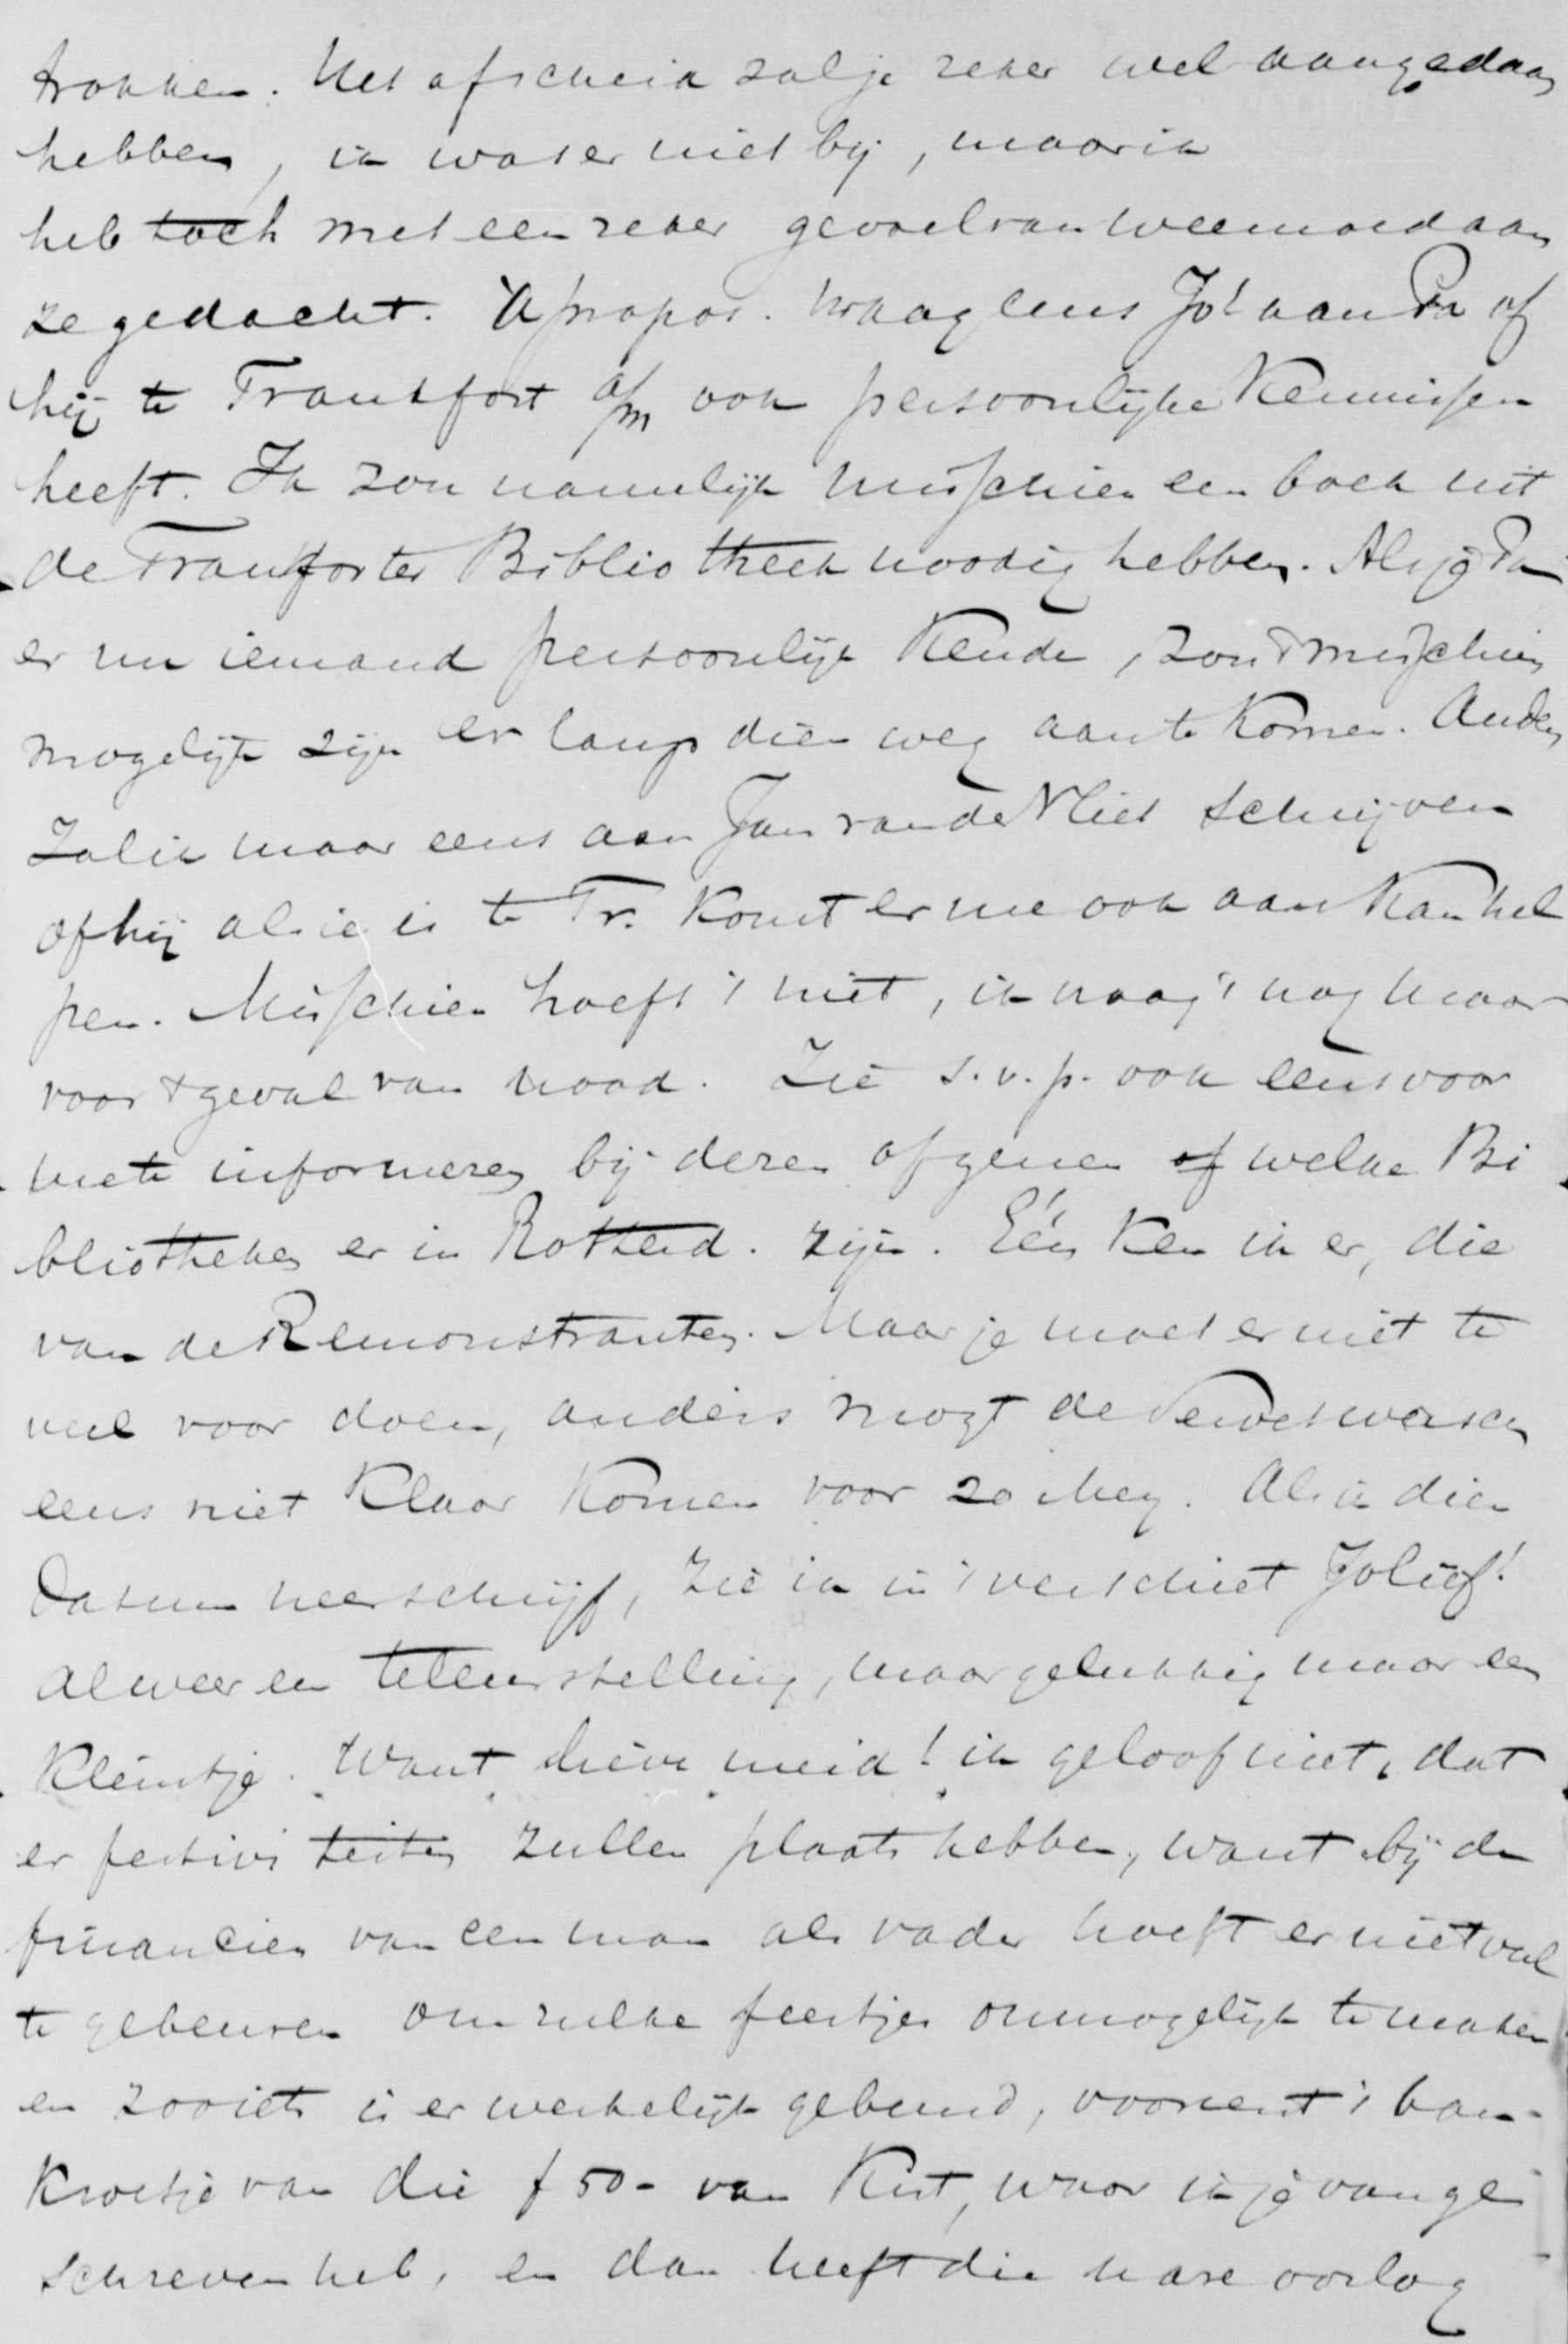 trokken. Het afscheid zal je zeker wel aangedaan
hebben, ik was er niet bij, maar ik
heb toch met een zeker gevoel van weemoed aan
ze gedacht. Apropos. Vraag eens Jo! aan Pa of
hij te Frankfort a/m ook persoonlijke Kennissen
heeft. Ik zou namelijk misschien een boek uit
de Frankforter Bibliotheek noodig hebben. Als je Pa
er nu iemand persoonlijk Kende, zou 't misschien
mogelijk zijn er langs dien weg aan te Komen. Anders
Zal ik maar eens aan Jan van de Vliet schrijven
of hij als ie is te Fr. Komt er me ook aan Kan hel
pen. Misschien hoeft 't niet, ik vraag 't nog maar
voor 't geval van nood. Zie s.v.p. ook eens voor
me te informeren bij dezen of genen of welke Bi
bliotheken er in Rotterd. zijn. Eén Ken ik er, die
van de Remonstranten. Maar je moet er niet te
veel voor doen, anders mogt de
eens niet Klaar Komen voor 20 Mey. Als ik dien
Datum neerschrijf, zie ik in 't verschiet Jolief!
alweer een teleurstelling, maar gelukkig maar een
Kleintje. Want lieve meid! ik geloof niet, dat
er festiviteiten zullen plaats hebben, want bij de
financien van een man als vader hoeft er niet veel
te gebeuren om zulke feestjes onmogelijk te maken
en zooiets is er werkelijk gebeurd, vooreerst 't ban-
Kroetje van die f 50- van Kist, waar ik je van ge
schreven heb, en dan heeft die nare oorlog